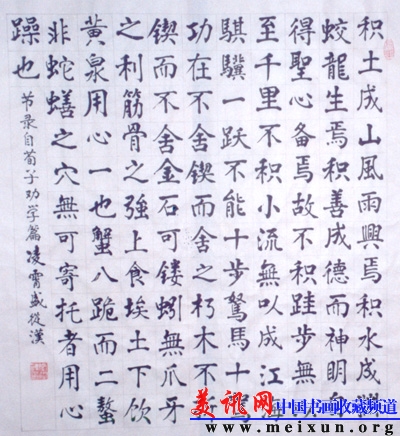 积土成山風雨興焉积水成
蛟龍生焉积善成德而神明
得聖心備焉故不积跬步無
至千里不积小流無以成江海
騏驥一跃不能十步駑馬十
功在不舍锲而舍之朽木不
锲而不舍金石可镂蚓無爪牙
之利筋骨之強上食埃土下飲
黄泉用心一也蟹八跪而二螯
非蛇蟮之穴無可寄托者用心
躁也
节录自荀子劝学篇凌霄盛從漢
美讯网 中国书画收藏频道
www.meixun.org